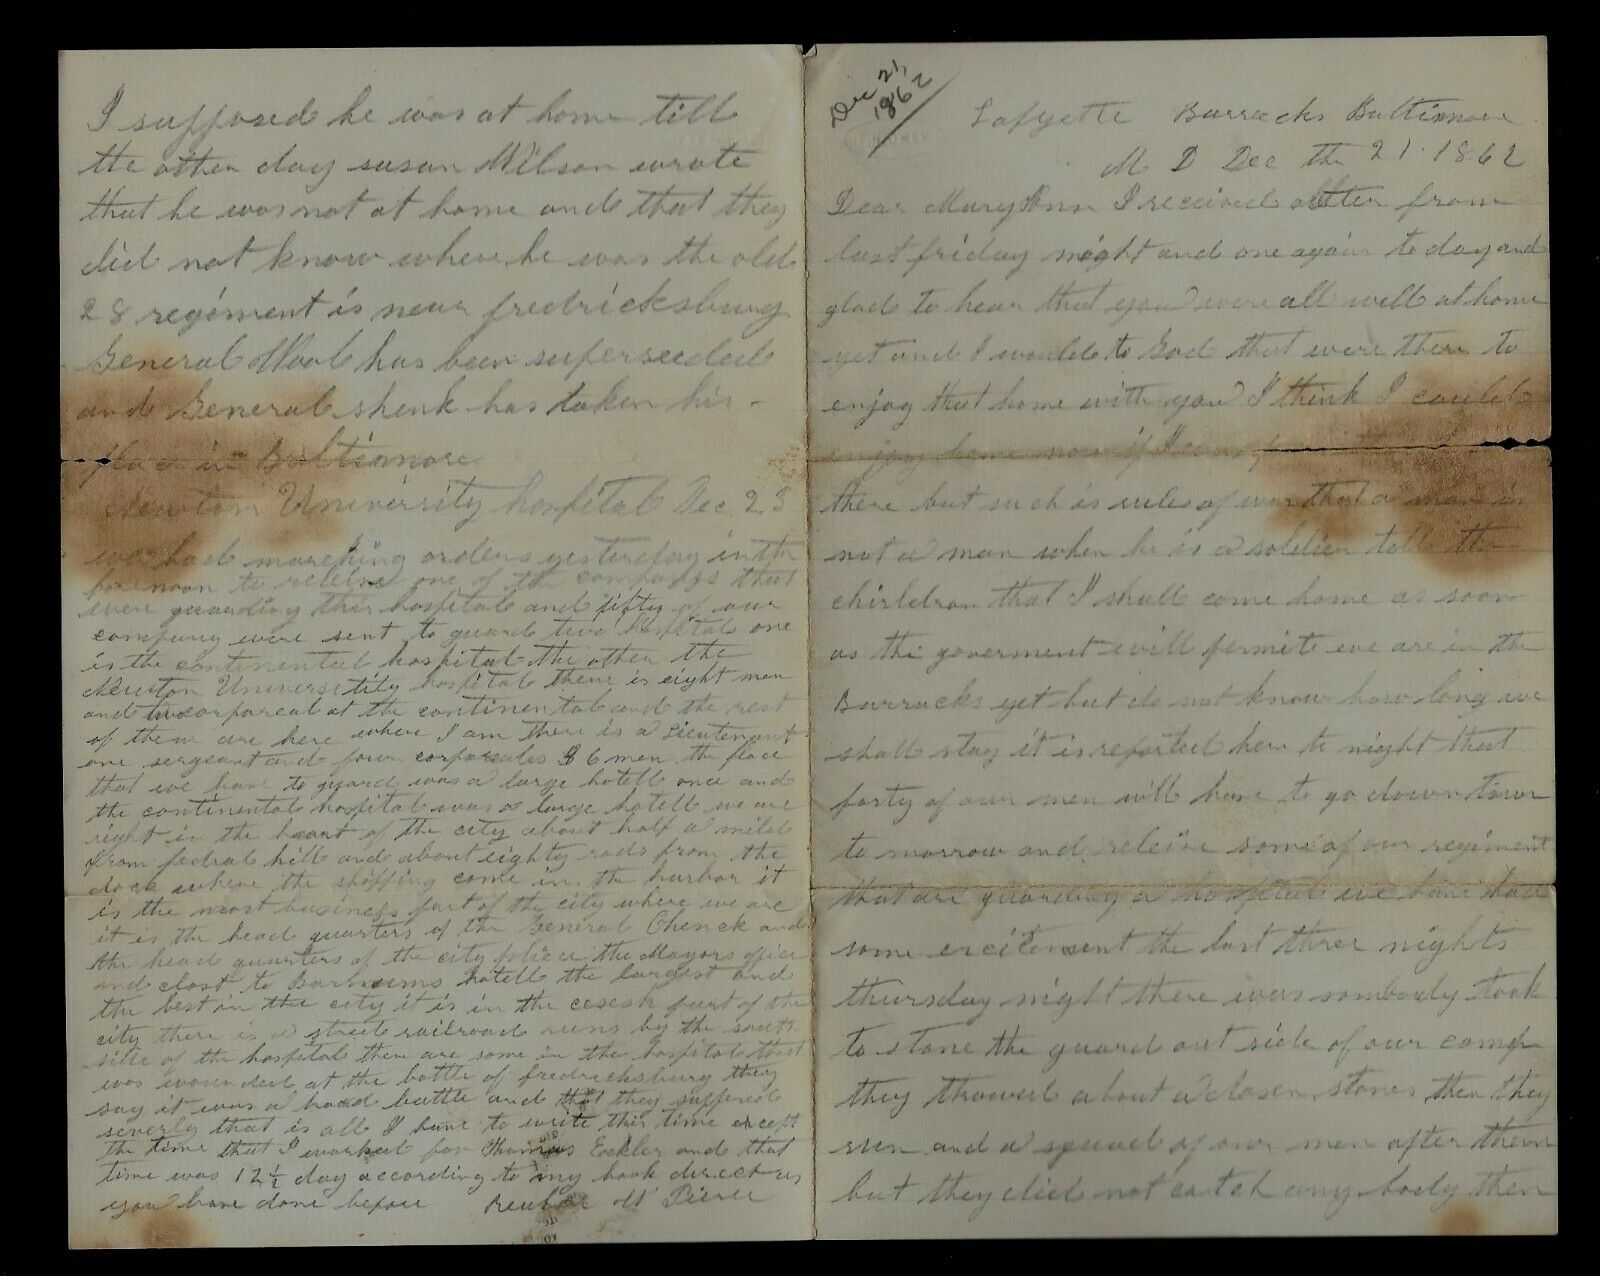 Dec 21,
1862
Lafyette Barracks Baltimore
M D Dec the 21. 1862
Dear Mary Ann I received a letter from
last friday night and one again to day and
glad to hear that you were all well at home
yet and I would to God that were there to
enjoy that home with you I think I could
enjoy home now if I was
there but such is rules of war that a man is
not a man when he is a soldier tell the
chirldren that I shall come home as soon
as the goverment will permite we are in the
Barracks yet but do not know how long we
shall stay it is reported here to night that
forty of our men will have to go down town
to morrow and releive some of our regiment
that are guarding a hospital we have had
some excitement the last three nights
thursday night there was sombody took
to stone the guard out side of our camp
they throwed about a dosen stones then they
run and a squad of our men after them
but they did not catch any body then
I supposed he was at home till
the other day susan Wilson wrote
that he was not at home and that they
did not know where he was the old
28 regiment is near fredricksburg
General Wool has been superseeded
and General shenk has taken his
place in Baltimore
Newton University hospital Dec 23
we had marching orders yesterday in the
fornoon to releive one of the companys that
were guarding this hospital and fifty of our
company were sent to guard two Hospitals one
is the continental hospital the other the
Newton Universitity hospital there is eight men
and two corporeal at the continental and the rest
of them are here where I am there is a Lieutenant
one sergeant and four corporeals 36 men the place
that we have to guard was a large hotell once and
the continental hospital was a large hotell we are
right in the heart of the city about half a mile
from fedral hill and about eighty rods from the
dock where the shipping come in the harbor it
is the most business part of the city where we are
it is the head quarters of the General Chenck and
the head quarters of the city police the Mayors office
and clost to Barnums hotell the largest and
the best in the city it is in the cesesh part of the
city there is a street railroad runs by the south
side of the hospital there are some in the hospital that
was wounded at the battle of fredricksburg they
say it was a hard battle and that they suffered
severly that is all I have to write this time except
the time that I worked for Thomas Eckler and that
time was 12½ day according to my book direct as
you have done before Reuben W Pierce